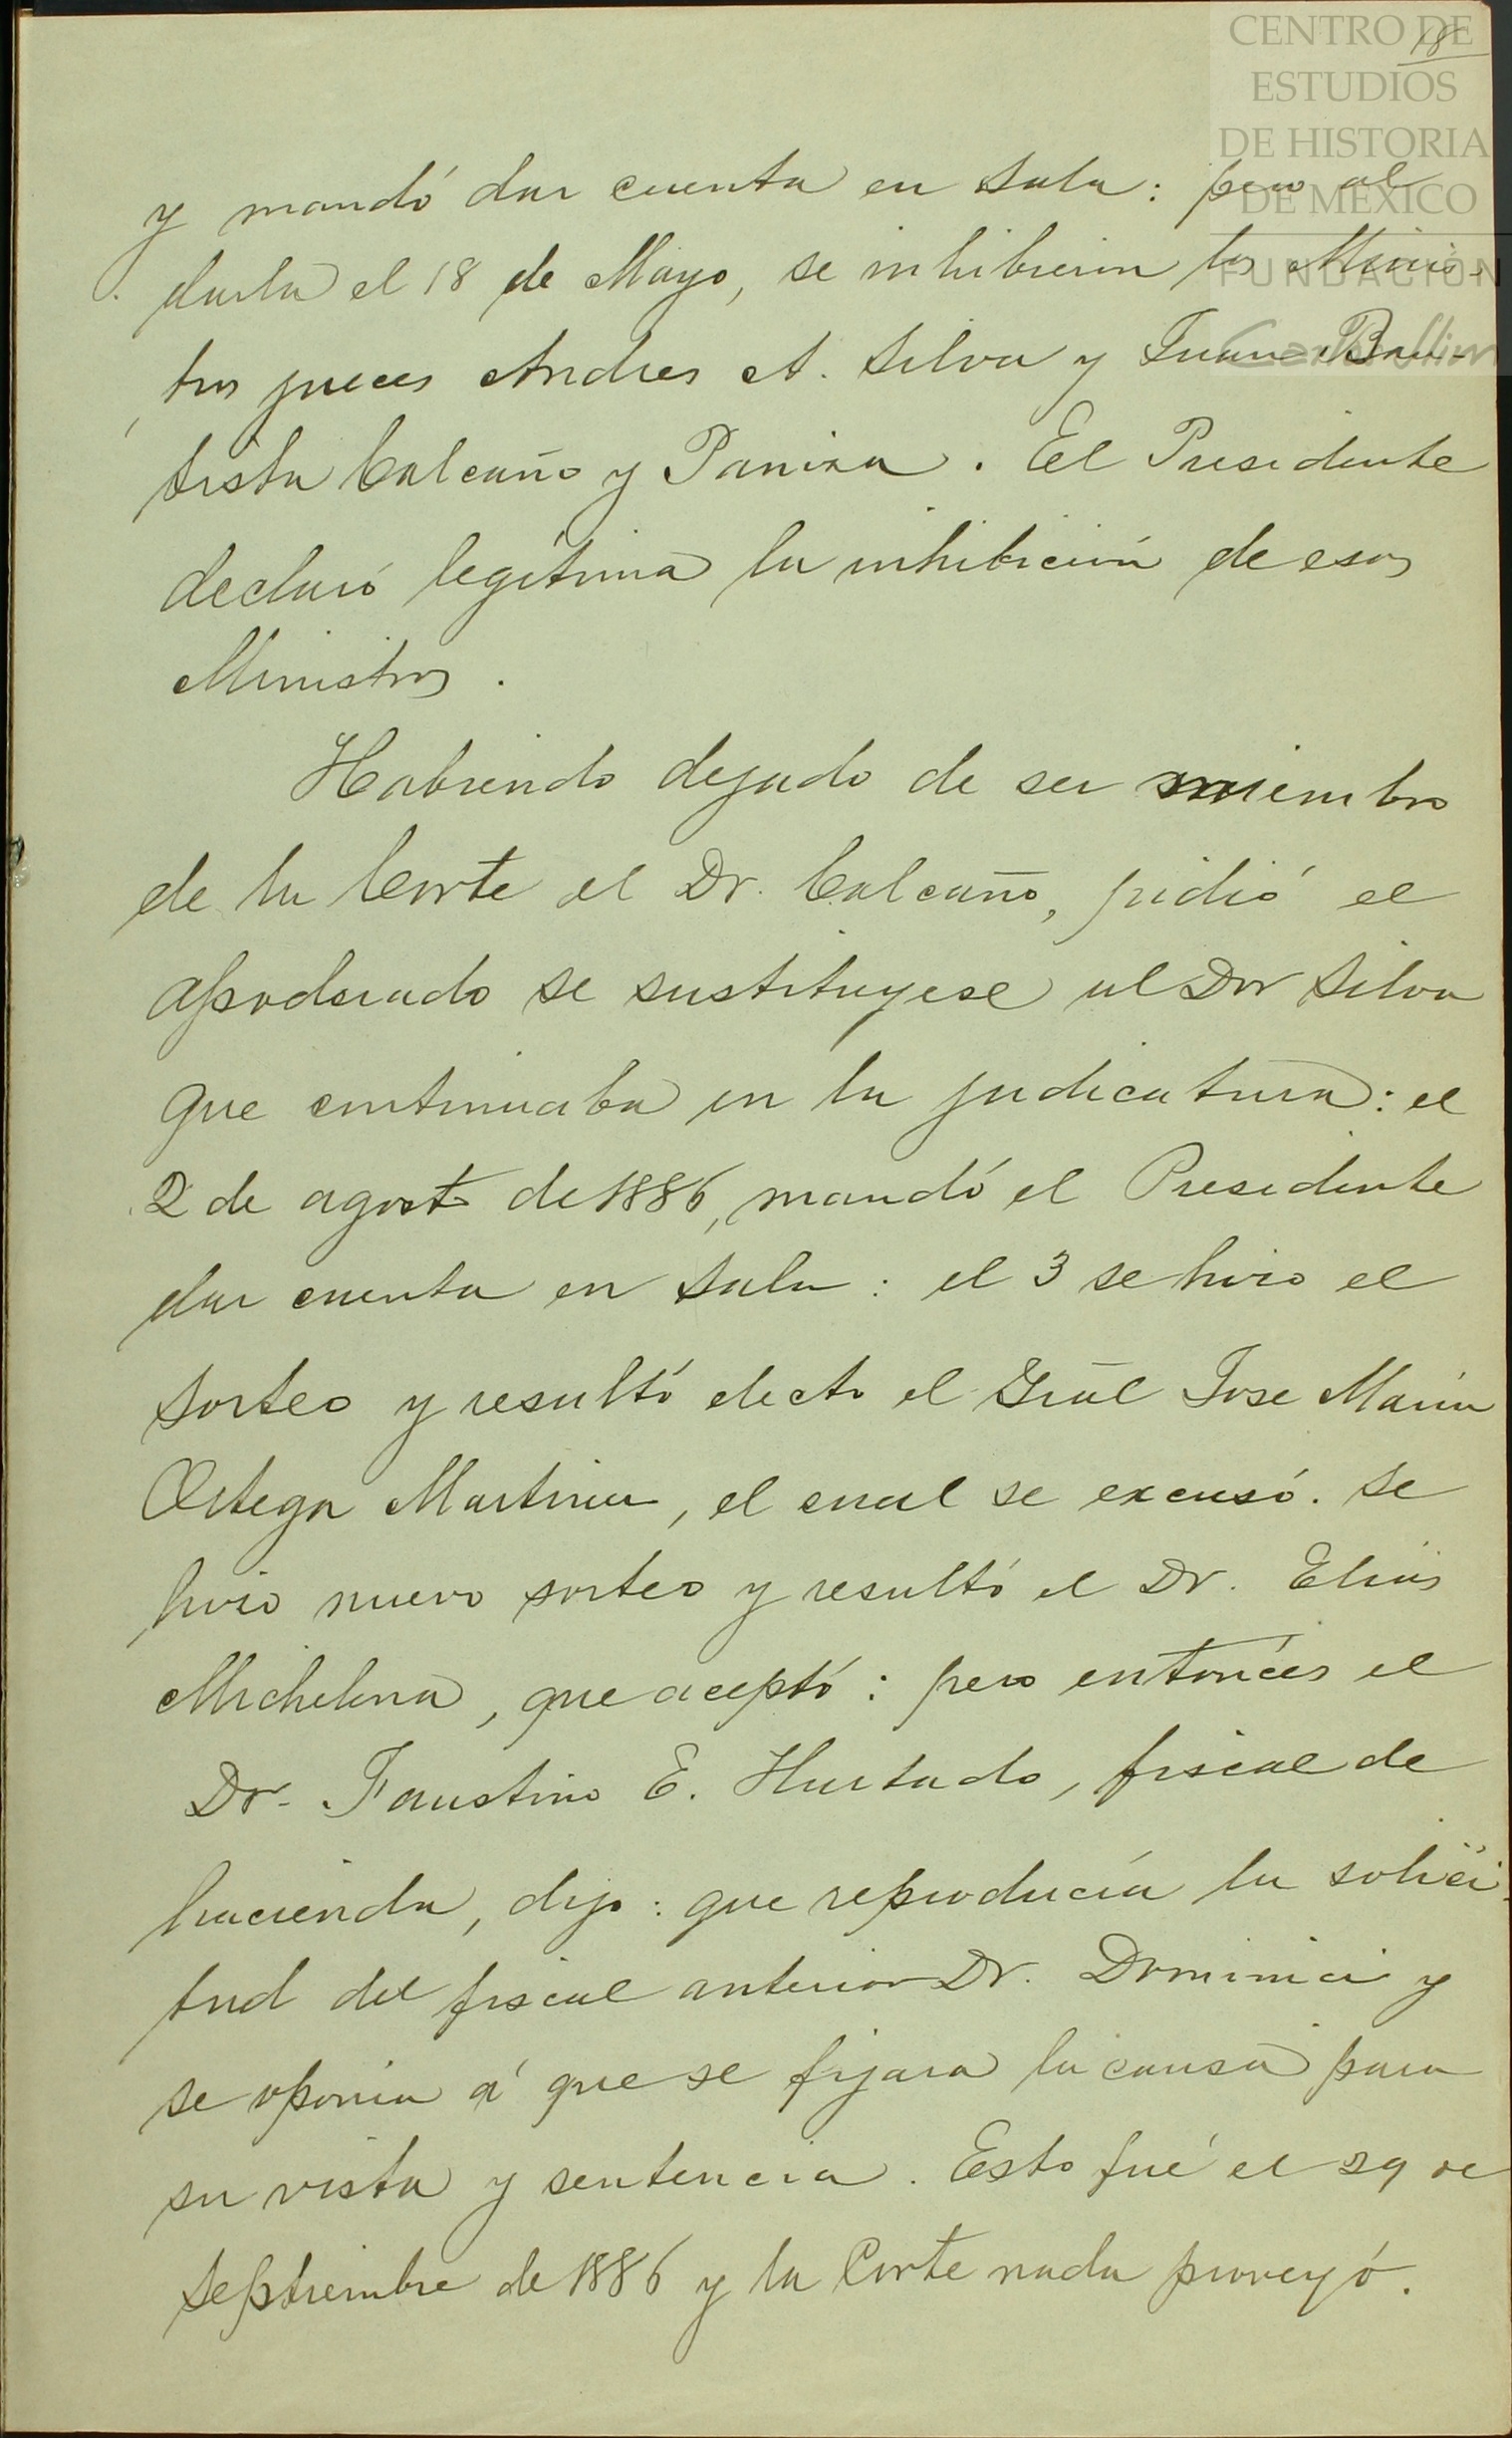 CENTRO DE
ESTUDIOS
DE HISTORIA
DE MEXICO
FUNDACIÓN
18
y mandó dar cuenta en Sala: pero al
darla el 18 de Mayo, se inhibieron los Minis-
tros jueces Andres A. Silva y Juan Bau-
tista Calcaño y Paniza. El Presidente
declaró legítima la inhibición de esos
Ministros.
Habiendo dejado de ser miembro
de la Corte el Dr. Calcaño, pidió el
apoderado se sustituyese al Dor Silva
que continuaba en la judicatura: el
2 de agosto de 1886, mandó el Presidente
dar cuenta en Sala: el 3 se hizo el
sorteo y resultó electo el Gral Jose Maria
Ortega Martinez, el cual se excusó. Se
hizo nuevo sorteo y resultó el Dr. Elias
Michelena, que aceptó: pero entonces el
Dr. Faustino E. Hurtado, fiscal de
hacienda, dijo: que reproducía la solici-
tud del fiscal anterior Dr. Dominici y
se oponia á que se fijara la causa para
su vista y sentencia. Esto fué el 29 de
Septiembre de 1886 y la Corte nada proveyó.